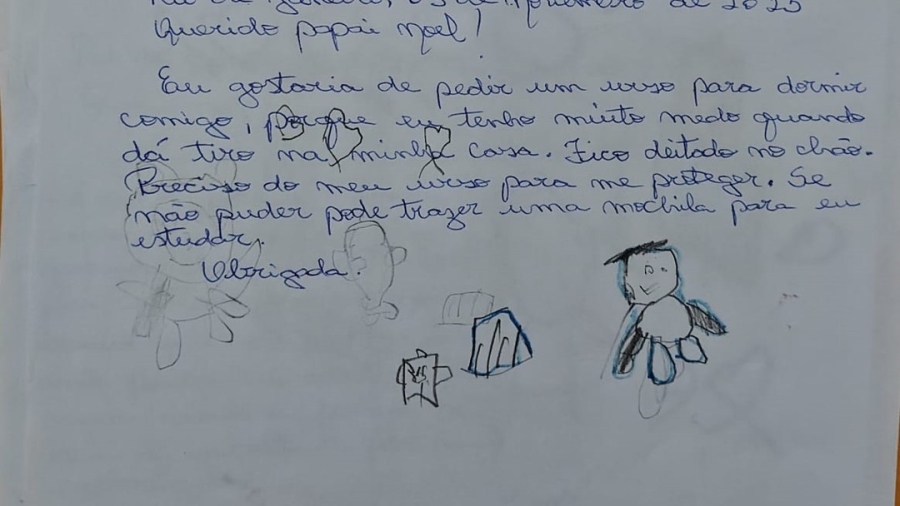 Rio de Janeiro, 03 de Novembro de 2025
Querido papai noel!
Eu gostaria de pedir um urso para dormir
comigo, porque eu tenho muito medo quando
dá tiro na minha casa. Fico deitado no chão.
Preciso do meu urso para me proteger. Se
não puder pode trazer uma mochila para eu
estudar.
Obrigada.